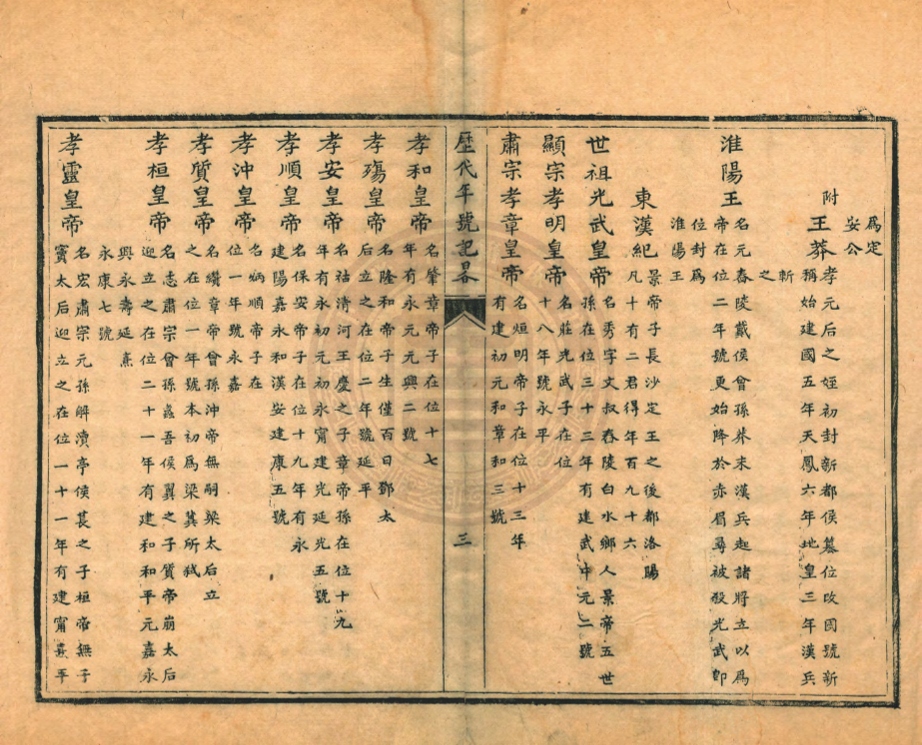 爲定
安公
附
王莽孝元后之姪初封新都侯篡位改國號新
稱始建國五年天鳳六年地皇三年漢兵
斬
之
淮陽王名元舂陵戴侯曾孫莽末漢兵起諸將立以爲
帝在位二年號更始降於赤眉尋被殺光武卽
位封爲
淮陽王
東漢紀景帝子長沙定王之後都洛陽
凡十有二君得年百九十六
世祖光武皇帝名秀字文叔舂陵白水鄉人景帝五世
孫在位三十三年有建武中元二號
顯宗孝明皇帝名莊光武子在位
十八年號永平
肅宗孝章皇帝名烜明帝子在位十三年
有建初元和章和三號
歷代年號記畧
三
孝和皇帝名肇章帝子在位十七
年有永元元興二號
孝殤皇帝名隆和帝子生僅百日鄧太
后立之在位二年號延平
孝安皇帝名祜清河王慶之子章帝孫在位十九
年有永初元初永甯建光延光五號
孝順皇帝名保安帝子在位十九年有永
建陽嘉永和漢安建康五號
孝沖皇帝名炳順帝子在
位一年號永嘉
孝質皇帝名纘章帝曾孫沖帝無嗣梁太后立
之在位一年號本初爲梁冀所弒
孝桓皇帝名志肅宗曾孫蠡吾侯翼之子質帝崩太后
迎立之在位二十一年有建和和平元嘉永
興永壽延熹
永康七號
孝靈皇帝名宏肅宗元孫解瀆亭侯萇之子桓帝無子
竇太后迎立之在位一十一年有建甯熹平